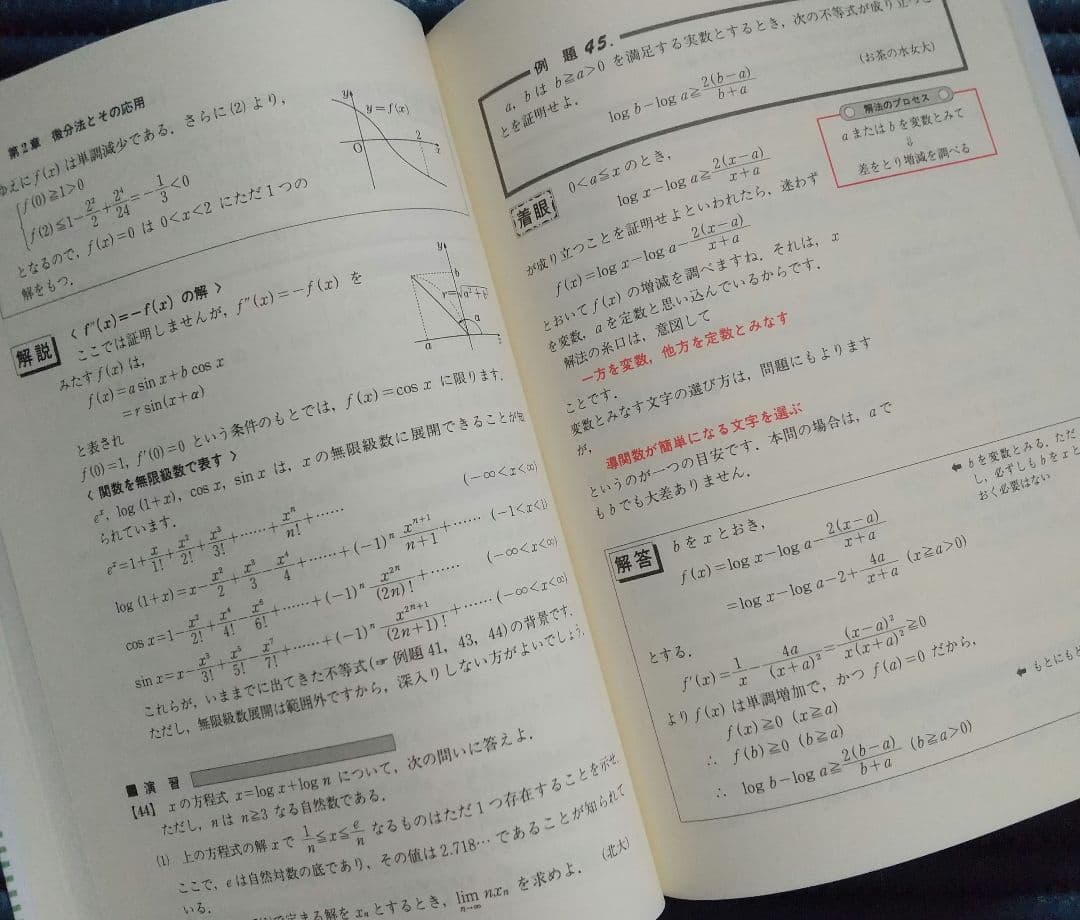 第2章 微分法とその応用
ゆえに f(x) は単調減少である．さらに(2)より，
f(0)≧1>0
f(2)≦1−2²/2+2⁴/24=−1/3<0
となるので，f(x)=0 は 0<x<2 にただ1つの
解をもつ．
y
y=f(x)
O
2
x
解説
〈 f″(x)=−f(x) の解 〉
ここでは証明しませんが，f″(x)=−f(x) を
みたす f(x) は，
f(x)=a sin x+b cos x
=r sin(x+α)
と表され
f(0)=1，f′(0)=0 という条件のもとでは，f(x)=cos x に限ります．
y
b
r=√a²+b²
α
a
〈 関数を無限級数で表す 〉
eˣ，log(1+x)，cos x，sin x は，x の無限級数に展開できることが知
られています．
eˣ=1+x/1!+x²/2!+x³/3!+……+xⁿ/n!+…… (−∞<x<∞)
log(1+x)=x−x²/2+x³/3−x⁴/4+……+(−1)ⁿ xⁿ⁺¹/n+1+…… (−1<x<1)
cos x=1−x²/2!+x⁴/4!−x⁶/6!+……+(−1)ⁿ x²ⁿ/(2n)!+…… (−∞<x<∞)
sin x=x−x³/3!+x⁵/5!−x⁷/7!+……+(−1)ⁿ x²ⁿ⁺¹/(2n+1)!+…… (−∞<x<∞)
これらが，いままでに出てきた不等式(☞ 例題41，43，44)の背景です．
ただし，無限級数展開は範囲外ですから，深入りしない方がよいでしょう．
■ 演習
[44] x の方程式 x=log x+log n について，次の問いに答えよ．
ただし，n は n≧3 なる自然数である．
(1) 上の方程式の解 x で 1/n≦x≦e/n なるものはただ1つ存在することを示せ．
ここで，e は自然対数の底であり，その値は 2.718… であることが知られて
いる．
定まる解を xₙ とするとき，lim n→∞ nxₙ を求めよ．
(北大)
例題 45.
a，b は b≧a>0 を満足する実数とするとき，次の不等式が成り立つこ
とを証明せよ．
log b−log a≧2(b−a)/b+a
(お茶の水女大)
解法のプロセス
a または b を変数とみて
⇓
差をとり増減を調べる
着眼
0<a≦x のとき，
log x−log a≧2(x−a)/x+a
が成り立つことを証明せよといわれたら，迷わず
f(x)=log x−log a−2(x−a)/x+a
とおいて f(x) の増減を調べますね．それは，x
を変数，a を定数と思い込んでいるからです．
解法の糸口は，意図して
一方を変数，他方を定数とみなす
ことです．
変数とみなす文字の選び方は，問題にもよります
が，
導関数が簡単になる文字を選ぶ
というのが一つの目安です．本問の場合は，a で
も b でも大差ありません．
解答
b を x とおき，
⬅ b を変数とみる．ただ
し，必ずしも b を x と
おく必要はない
f(x)=log x−log a−2(x−a)/x+a
=log x−log a−2+4a/x+a (x≧a>0)
とする．
f′(x)=1/x−4a/(x+a)²=(x−a)²/x(x+a)²≧0
より f(x) は単調増加で，かつ f(a)=0 だから，
⬅ もとにもど
f(x)≧0 (x≧a)
∴ f(b)≧0 (b≧a)
∴ log b−log a≧2(b−a)/b+a (b≧a>0)